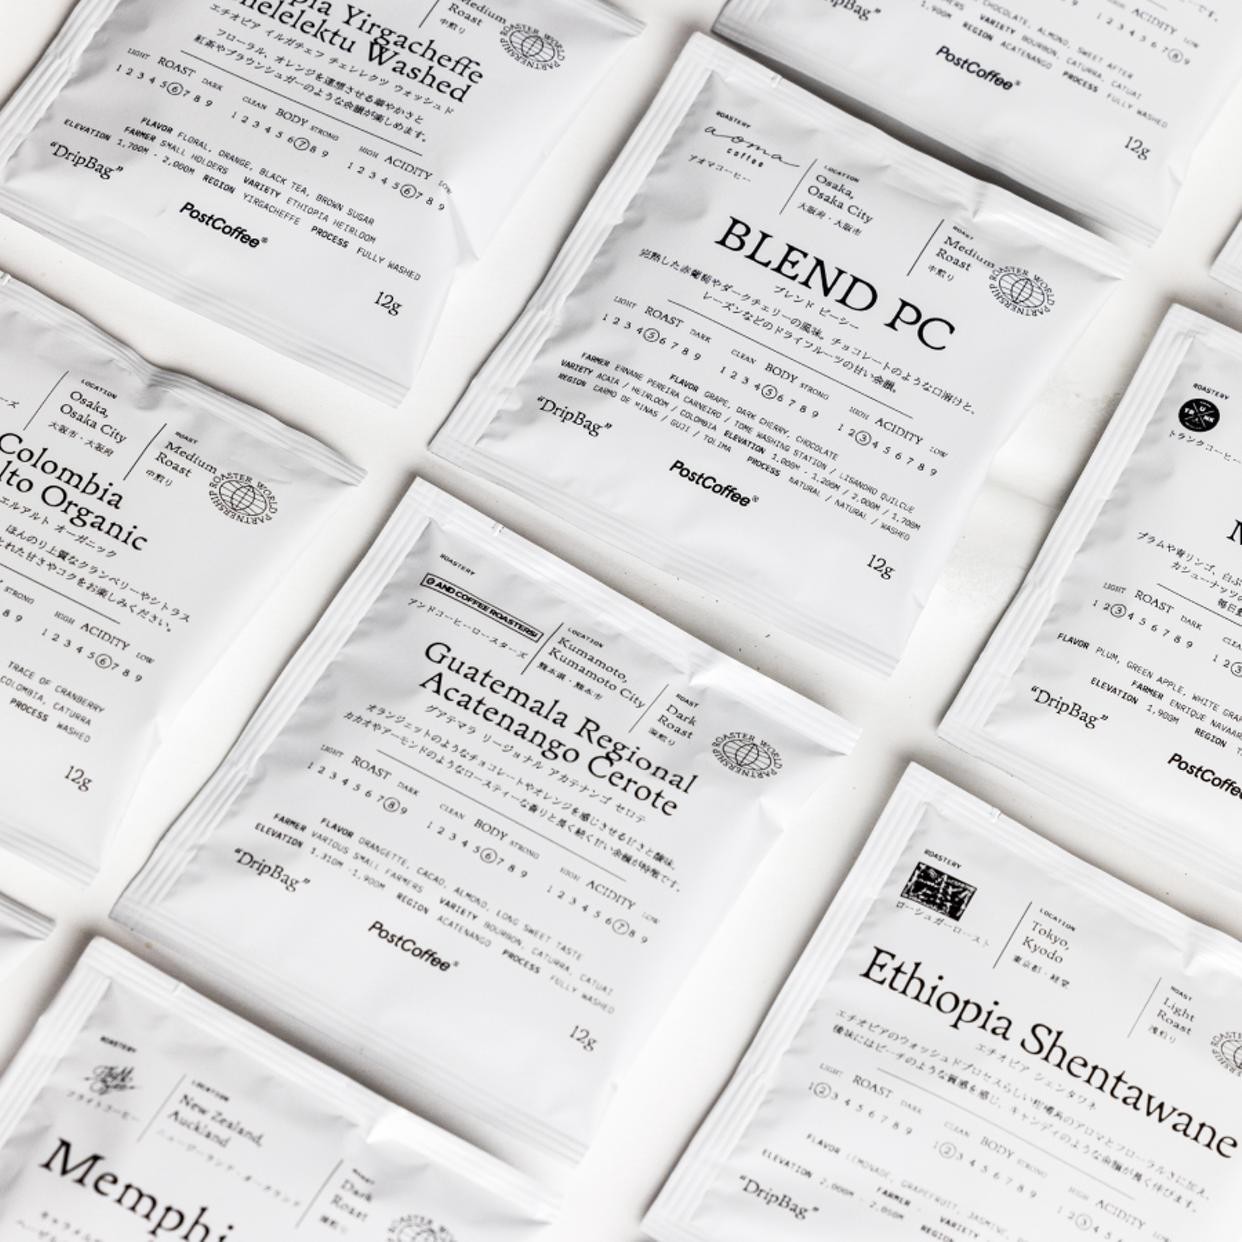 Yirgacheffe
Chelelektu Washed
エチオピア イルガチェフ チェレレクツ ウォッシュド
フローラル、オレンジを連想させる華やかさと
紅茶やブラウンシュガーのような余韻が楽しめます。
Medium
Roast
中煎り
ROASTER WORLD PARTNERSHIP
LIGHT ROAST DARK
1 2 3 4 5 6 7 8 9
CLEAN BODY STRONG
1 2 3 4 5 6 7 8 9
HIGH ACIDITY LOW
1 2 3 4 5 6 7 8 9
FLAVOR FLORAL, ORANGE, BLACK TEA, BROWN SUGAR
FARMER SMALL HOLDERS VARIETY ETHIOPIA HEIRLOOM
ELEVATION 1,700M - 2,000M REGION YIRGACHEFFE PROCESS FULLY WASHED
“DripBag”
PostCoffee®
12g
DripBag”
CHOCOLATE, ALMOND, SWEET AFTER
1,900M REGION ACATENANGO VARIETY BOURBON, CATURRA, CATUAI
PROCESS FULLY WASHED
PostCoffee®
12g
ROASTERY
aoma
coffee
アオマコーヒー
LOCATION
Osaka,
Osaka City
大阪府・大阪市
ROAST
Medium
Roast
中煎り
ROASTER WORLD PARTNERSHIP
BLEND PC
ブレンド ピーシー
完熟した赤葡萄やダークチェリーの風味。チョコレートのような口溶けと、
レーズンなどのドライフルーツの甘い余韻。
LIGHT ROAST DARK
1 2 3 4 5 6 7 8 9
CLEAN BODY STRONG
1 2 3 4 5 6 7 8 9
HIGH ACIDITY LOW
1 2 3 4 5 6 7 8 9
FLAVOR GRAPE, DARK CHERRY, CHOCOLATE
FARMER ERNANE PEREIRA CARNEIRO / TOME WASHING STATION / LISANDRO QUILCUE
VARIETY ACAIA / HEIRLOOM / COLOMBIA ELEVATION 1,000M - 1,200M / 2,000M / 1,700M
REGION CARMO DE MINAS / GUJI / TOLIMA PROCESS NATURAL / NATURAL / WASHED
“DripBag”
PostCoffee®
12g
LOCATION
Osaka,
Osaka City
大阪府・大阪市
ROAST
Medium
Roast
中煎り
ROASTER WORLD PARTNERSHIP
Colombia
lto Organic
エルアルト オーガニック
ほんのり上質なクランベリーやシトラス
とれた甘さやコクをお楽しみください。
STRONG
8 9
HIGH ACIDITY LOW
1 2 3 4 5 6 7 8 9
TRACE OF CRANBERRY
COLOMBIA, CATURRA
PROCESS WASHED
12g
ROASTERY
AND COFFEE ROASTERS
アンドコーヒーロースターズ
LOCATION
Kumamoto,
Kumamoto City
熊本県・熊本市
ROAST
Dark
Roast
深煎り
ROASTER WORLD PARTNERSHIP
Guatemala Regional
Acatenango Cerote
グアテマラ リージョナル アカテナンゴ セロテ
オランジェットのようなチョコレートやオレンジを感じさせる甘さと酸味。
カカオやアーモンドのようなロースティーな香りと長く続く甘い余韻が特徴です。
LIGHT ROAST DARK
1 2 3 4 5 6 7 8 9
CLEAN BODY STRONG
1 2 3 4 5 6 7 8 9
HIGH ACIDITY LOW
1 2 3 4 5 6 7 8 9
FLAVOR ORANGETTE, CACAO, ALMOND, LONG SWEET TASTE
FARMER VARIOUS SMALL FARMERS VARIETY BOURBON, CATURRA, CATUAI
ELEVATION 1,310M - 1,900M REGION ACATENANGO PROCESS FULLY WASHED
“DripBag”
PostCoffee®
12g
ROASTERY
トランクコーヒー
プラムや青リンゴ、白ぶ
カシューナッツの
LIGHT ROAST DARK
1 2 3 4 5 6 7 8 9
FLAVOR PLUM, GREEN APPLE, WHITE GRAP
FARMER ENRIQUE NAVARR
ELEVATION 1,900M REGION
“DripBag”
PostCoffee
ROASTERY
ローシュガーロースト
LOCATION
Tokyo,
Kyodo
東京都・経堂
ROAST
Light
Roast
浅煎り
Ethiopia Shentawane
エチオピア シェンタワネ
エチオピアのウォッシュドプロセスらしい柑橘系のアロマとフローラルさに加え、
後味にはピーチのような質感を感じ、キャンディのような余韻が長く伸びます。
LIGHT ROAST DARK
1 2 3 4 5 6 7 8 9
CLEAN BODY STRONG
1 2 3 4 5 6 7 8 9
HIGH ACIDITY
1 2 3 4 5
FLAVOR LEMONADE, GRAPEFRUIT, JASMINE,
ELEVATION 2,000M - 2,050M FARMER - VARIETY
REGION
“DripBag”
ROASTERY
フライトコーヒー
LOCATION
New Zealand,
Auckland
ニュージーランド・オークランド
ROAST
Dark
Roast
深煎り
Memphi